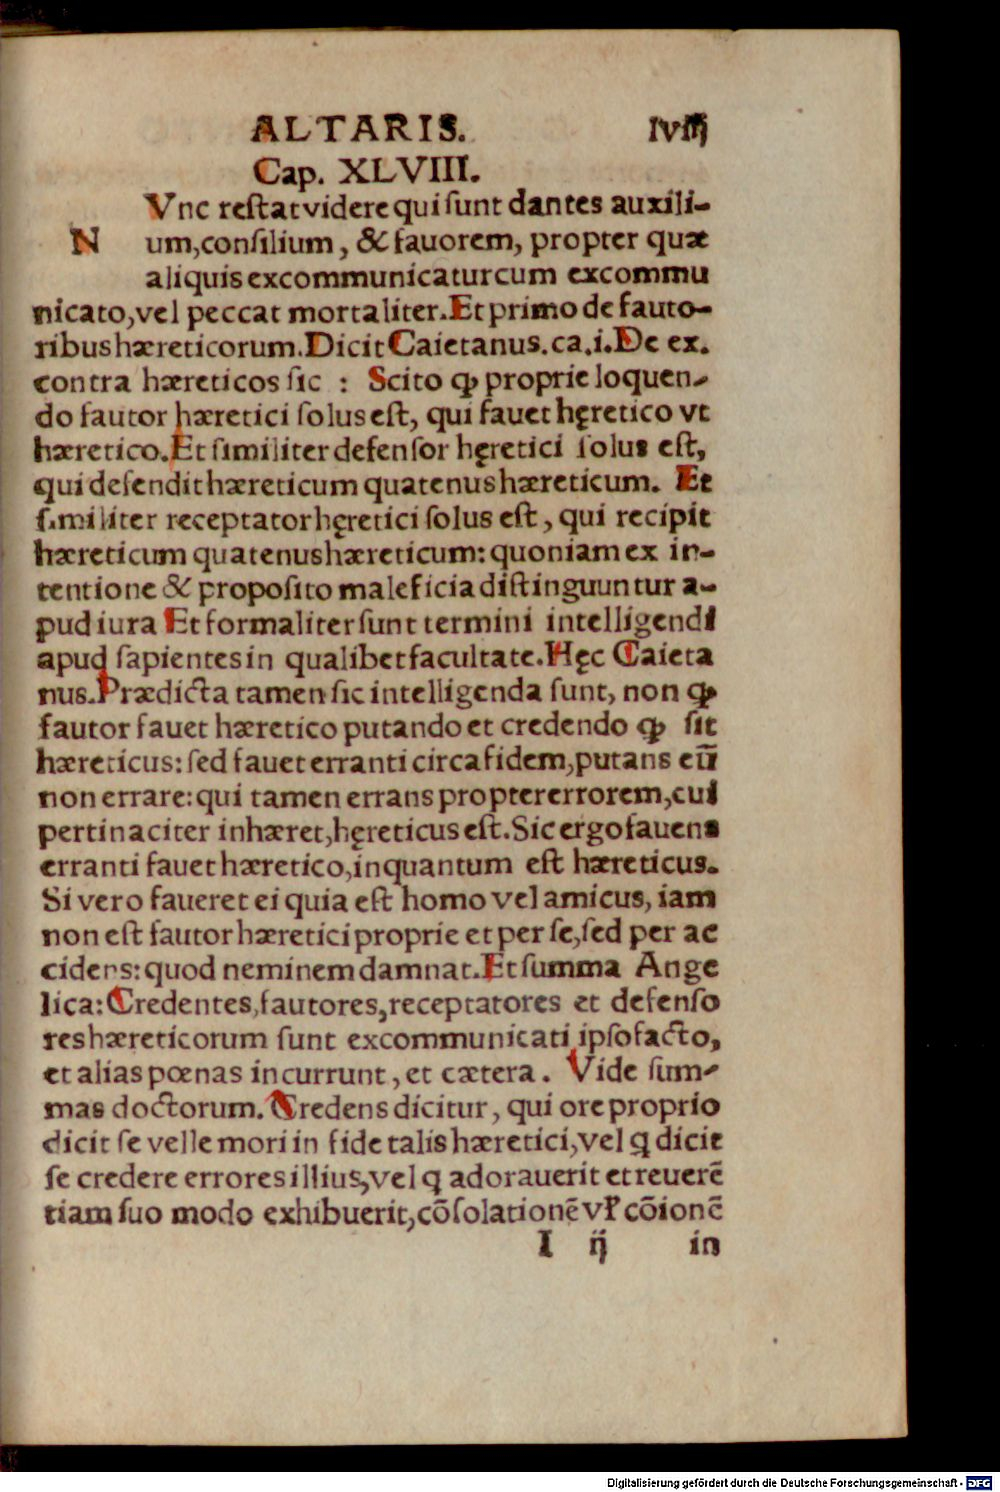 ALTARIS. lviij
Cap. XLVIII.
Vnc restat videre qui sunt dantes auxili-
N um, consilium, & fauorem, propter quæ
aliquis excommunicatur cum excommu
nicato, vel peccat mortaliter. Et primo de fauto-
ribus hæreticorum. Dicit Caietanus. ca. i. De ex.
contra hæreticos sic : Scito ꝙ proprie loquen-
do fautor hæretici solus est, qui fauet hęretico vt
hæretico. Et similiter defensor hęretici solus est,
qui defendit hæreticum quatenus hæreticum. Et
similiter receptator hęretici solus est, qui recipit
hæreticum quatenus hæreticum: quoniam ex in-
tentione & proposito maleficia distinguuntur a-
pud iura Et formaliter sunt termini intelligendi
apud sapientes in qualibet facultate. Hęc Caieta
nus. Prædicta tamen sic intelligenda sunt, non ꝙ
fautor fauet hæretico putando et credendo ꝙ sit
hæreticus: sed fauet erranti circa fidem, putans eū
non errare: qui tamen errans propter errorem, cui
pertinaciter inhæret, hęreticus est. Sic ergo fauens
erranti fauet hæretico, inquantum est hæreticus.
Si vero faueret ei quia est homo vel amicus, iam
non est fautor hæretici proprie et per se, sed per ac
cidens: quod neminem damnat. Et summa Ange
lica: Credentes, fautores, receptatores et defenso
res hæreticorum sunt excommunicati ipso facto,
et alias pœnas incurrunt, et cætera. Vide sum-
mas doctorum. Credens dicitur, qui ore proprio
dicit se velle mori in fide talis hæretici, vel q̨ dicit
se credere errores illius, vel q̨ adorauerit et reuerē
tiam suo modo exhibuerit, cōsolationē vł cōionē
I ij in
Digitalisierung gefördert durch die Deutsche Forschungsgemeinschaft - DFG